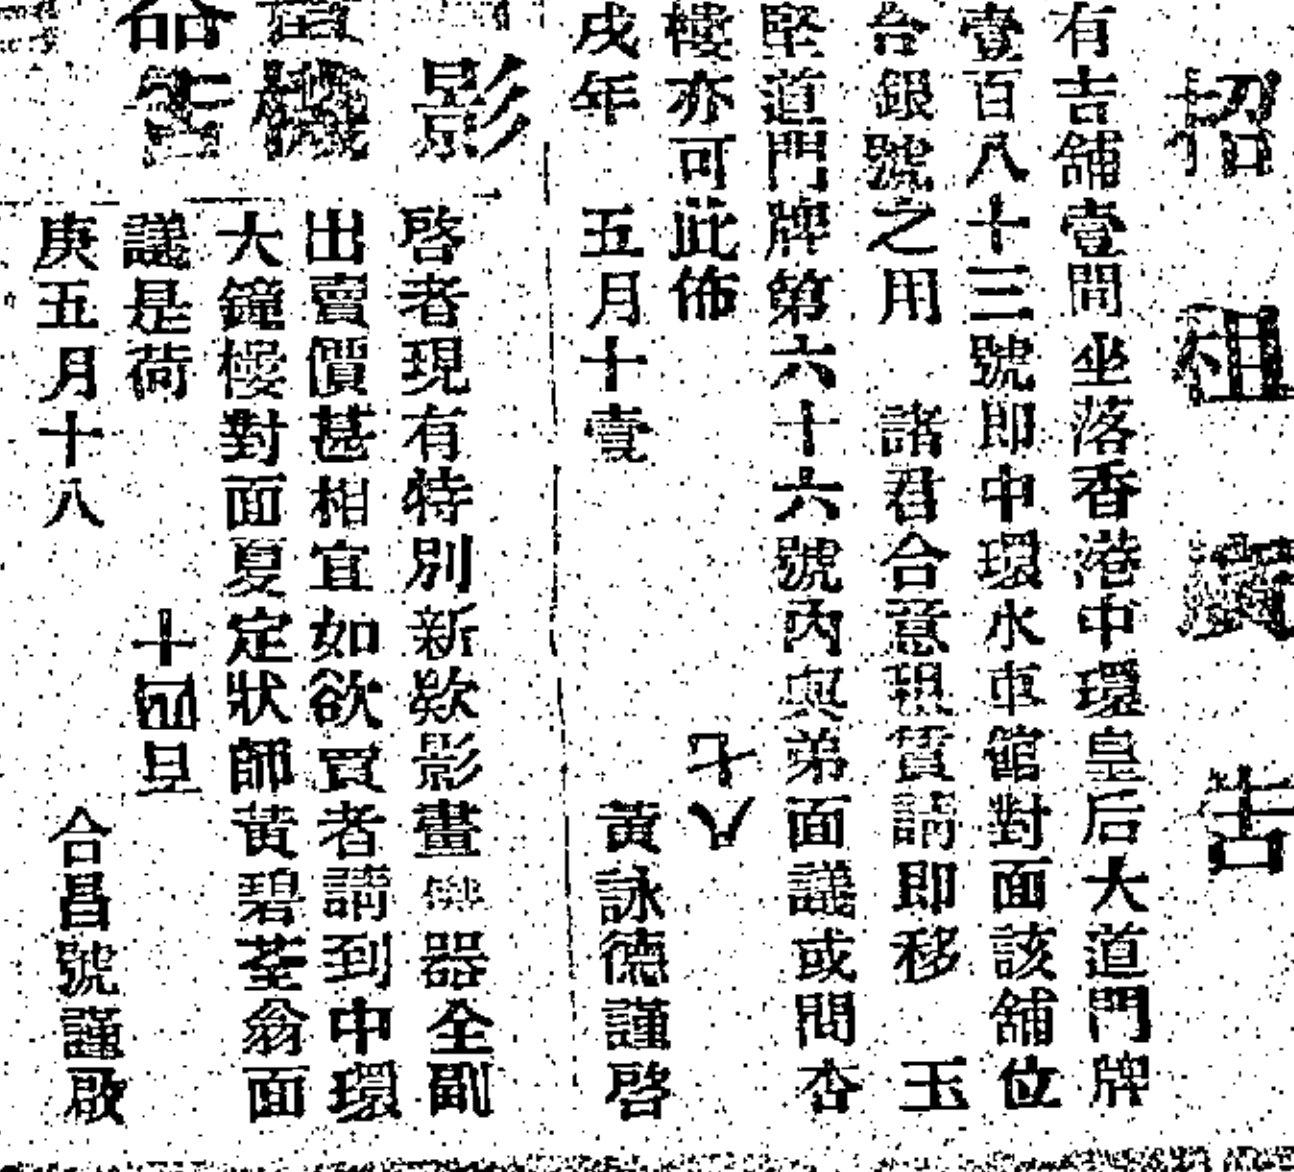 招租廣告
有吉舖壹間坐落香港中環皇后大道門牌
壹百八十三號即中環水車館對面該舖位
合銀號之用　諸君合意租賃請即移　玉
堅道門牌第六十六號內與弟面議或問杏
樓亦可此佈
戌年　五月十壹　黃詠德謹啓
影
機
啓者現有特別新欵影畫機器全副
出賣價甚相宜如欲買者請到中環
大鐘樓對面夏定狀師黃碧荃翁面
議是荷
庚五月十八　合昌號謹啟